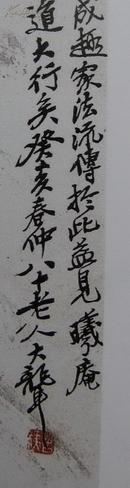 成趣家法流傳於此益見曦庵
道大行矣癸亥春仲八十老人大聾